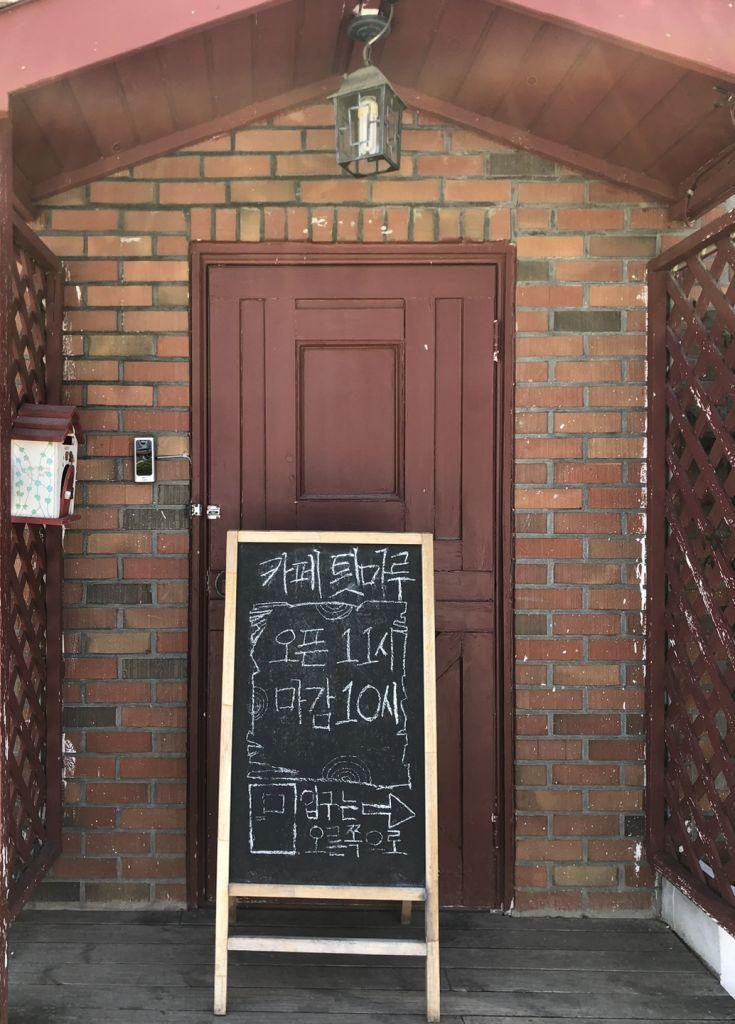 카페 툇마루
오픈 11시
마감 10시
입구는
오른쪽으로